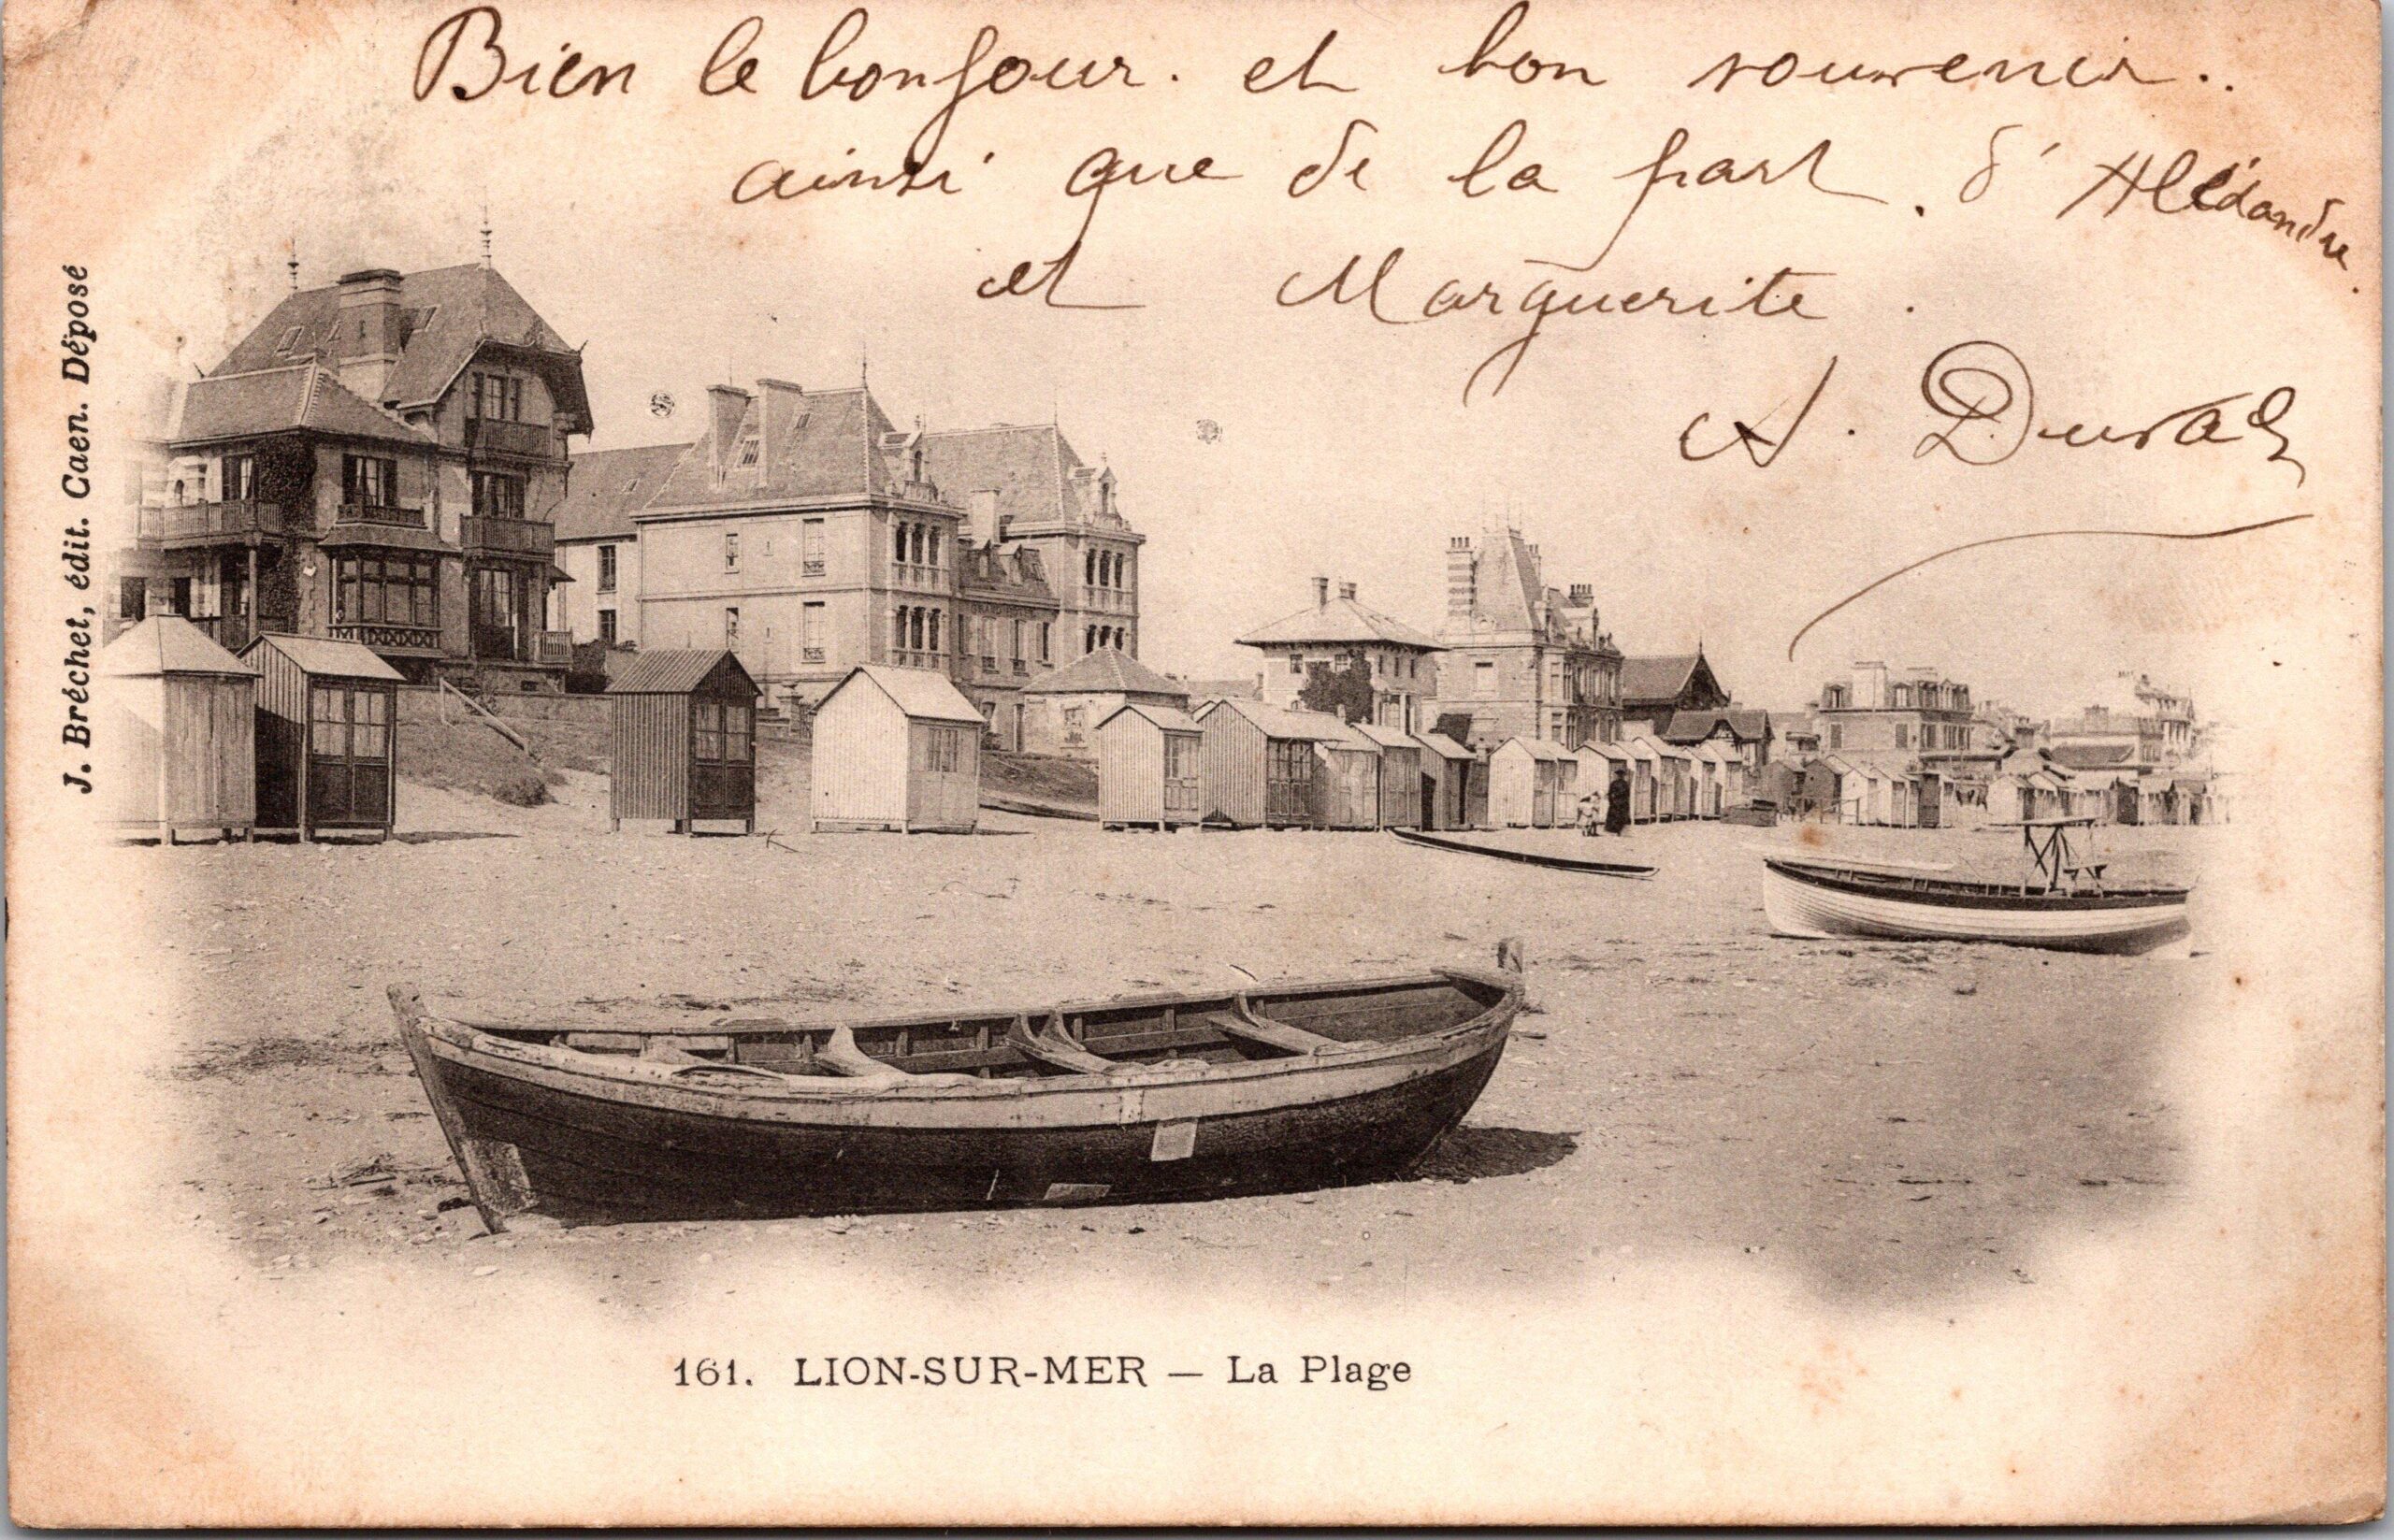 Bien le bonjour. et bon souvenir..
ainsi que de la part. d'
et Marguerite.
A. Duval
J. Bréchet, édit. Caen. Déposé
161. LION-SUR-MER — La Plage